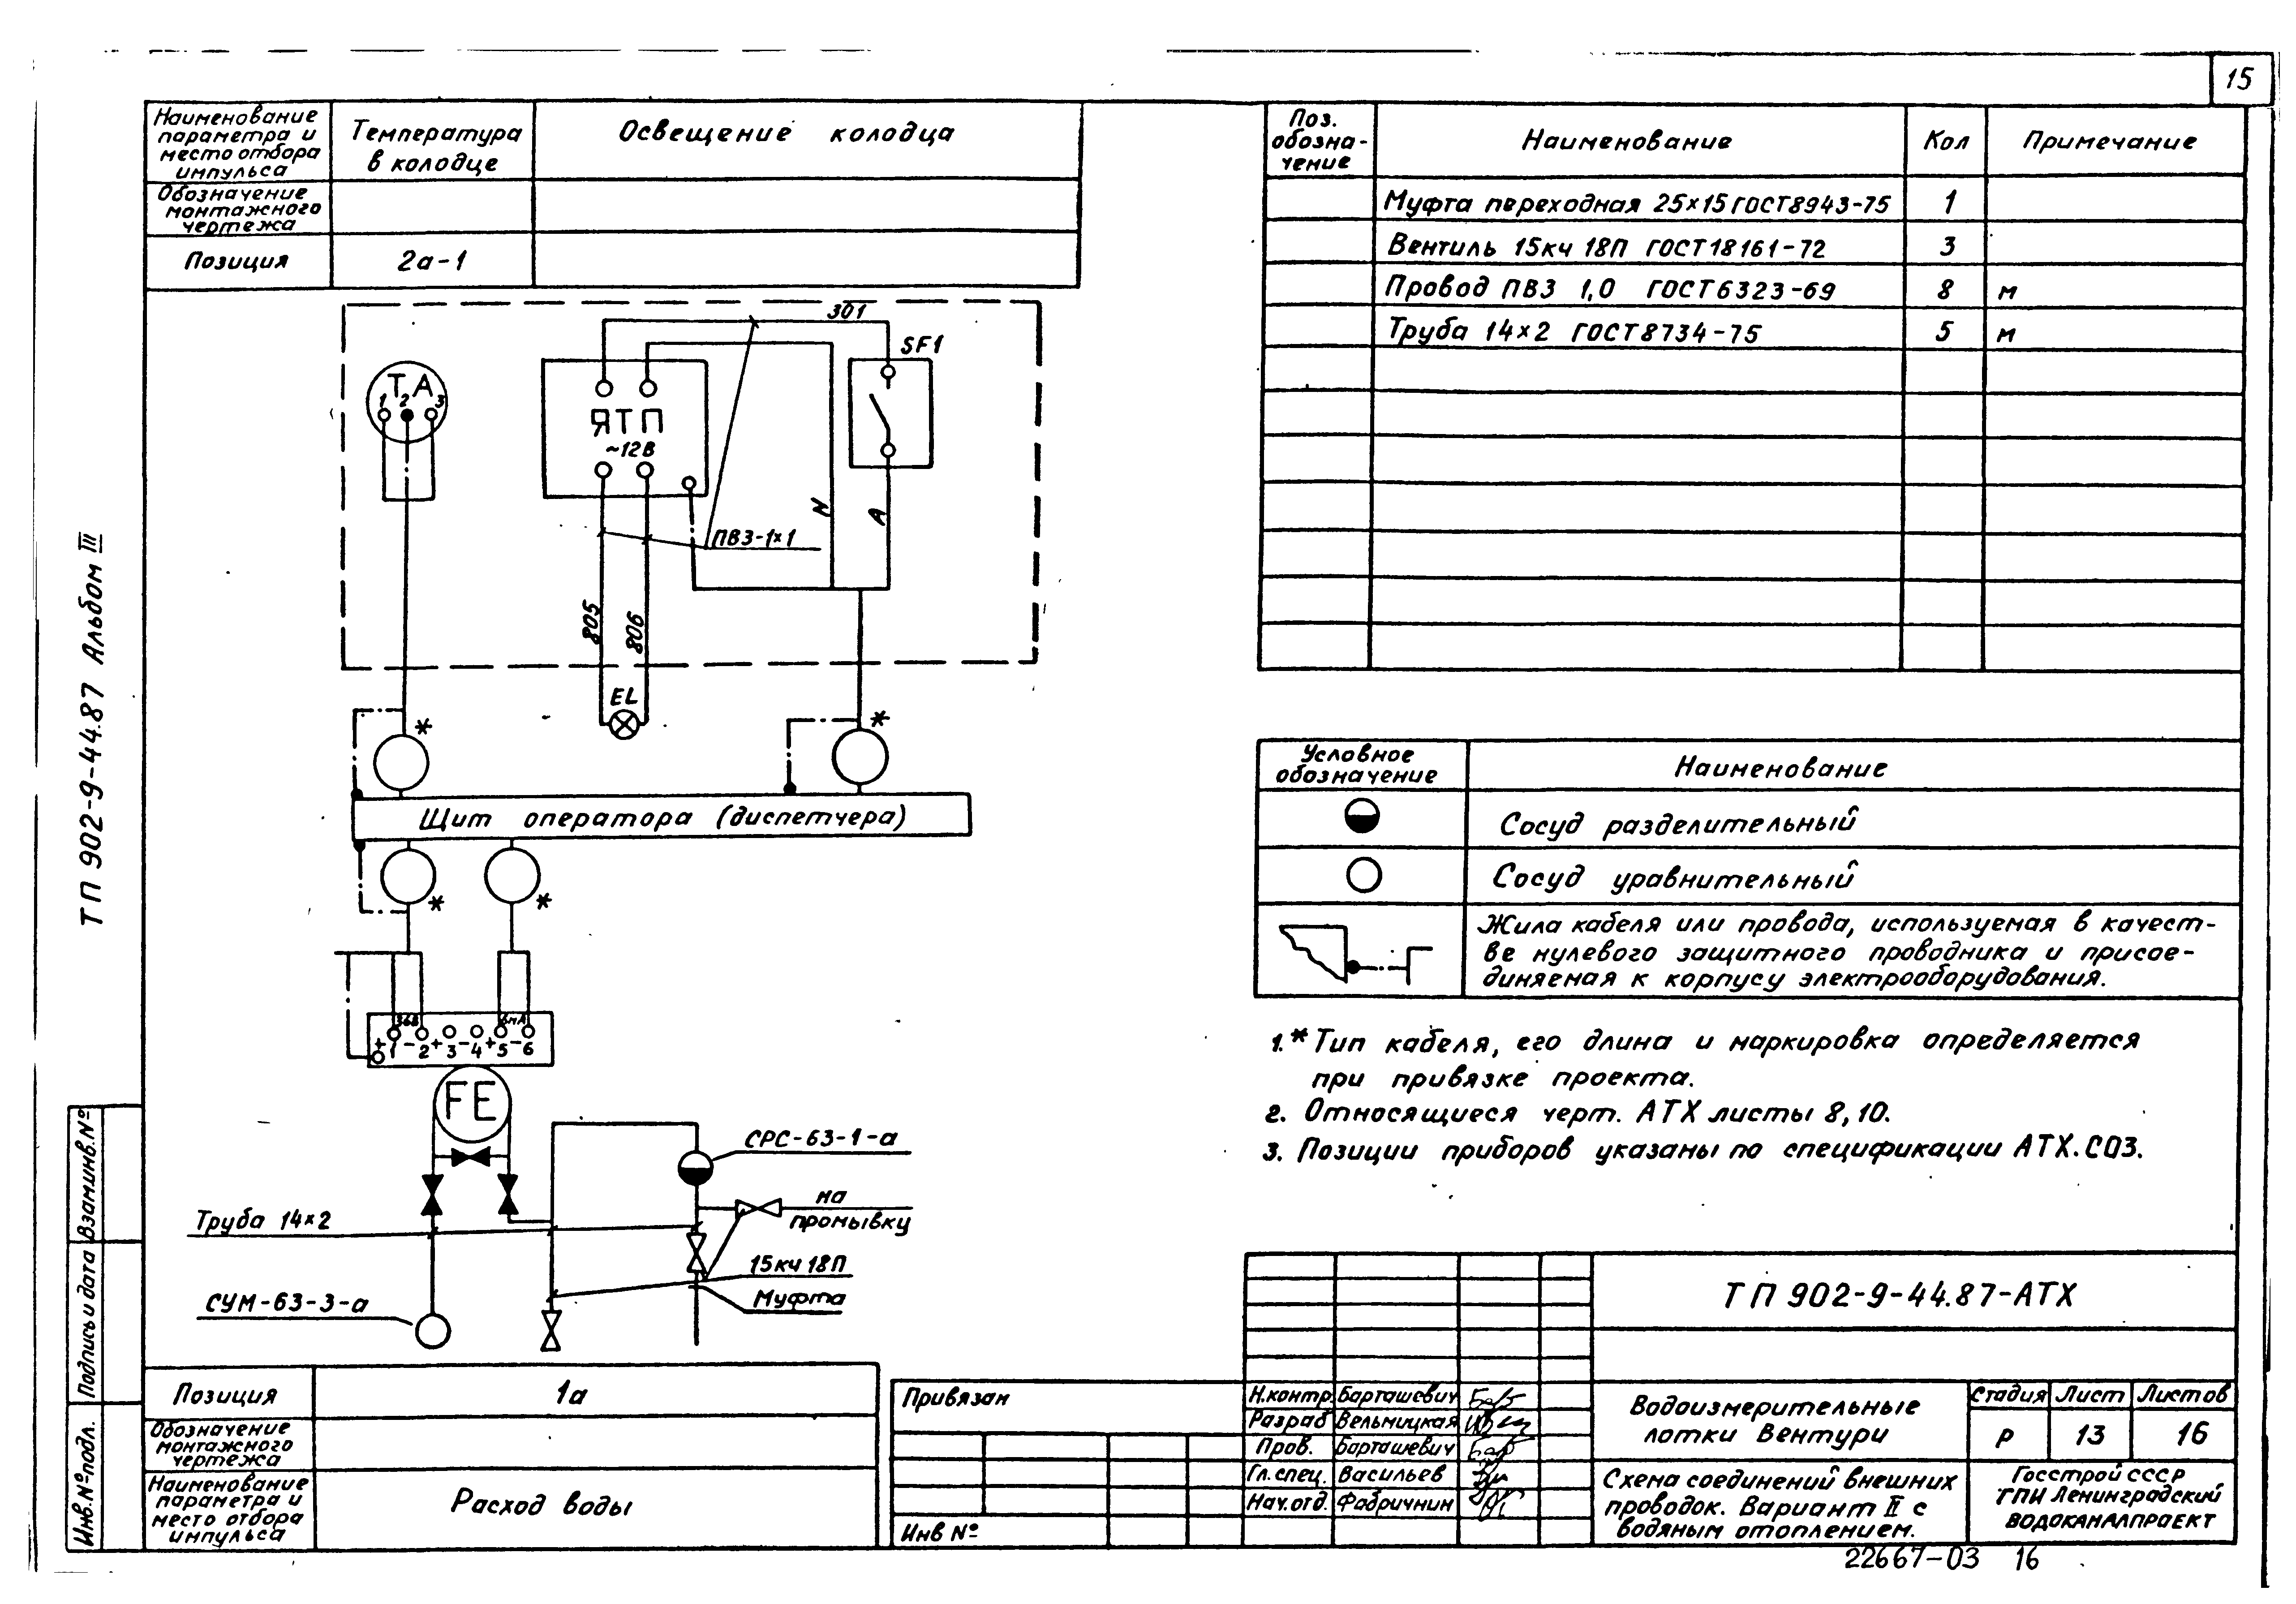 15
Наименование
параметра и
место отбора
импульса
Температура
в колодце
Освещение колодца
Обозначение
монтажного
чертежа
Позиция
2а-1
301
SF1
ТА
1 2 3
ЯТП
~12В
N
А
ПВ3-1×1
805
806
EL
*
*
Щит оператора (диспетчера)
*
*
36В
6мА
+ 1 - 2 + 3 - 4 + 5 - 6
FE
СРС-63-1-а
на
промывку
Труба 14×2
15кч 18П
Муфта
СУМ-63-3-а
Позиция
1а
Обозначение
монтажного
чертежа
Наименование
параметра и
место отбора
импульса
Расход воды
ТП 902-9-44.87 Альбом III
Взам.инв.№
Подпись и дата
Инв.№ подл.
Поз.
обозна-
чение
Наименование
Кол
Примечание
Муфта переходная 25×15 ГОСТ 8943-75 1
Вентиль 15кч 18П ГОСТ 18161-72 3
Провод ПВ3 1,0 ГОСТ 6323-69 8 м
Труба 14×2 ГОСТ 8734-75 5 м
Условное
обозначение
Наименование
Сосуд разделительный
Сосуд уравнительный
Жила кабеля или провода, используемая в качест-
ве нулевого защитного проводника и присое-
диняемая к корпусу электрооборудования.
1.* Тип кабеля, его длина и маркировка определяется
при привязке проекта.
2. Относящиеся черт. АТХ листы 8,10.
3. Позиции приборов указаны по спецификации АТХ.СО3.
Привязан
Инв №
ТП 902-9-44.87-АТХ
Н.контр. Барташевич
Разраб Вельмицкая
Пров. Барташевич
Гл.спец. Васильев
Нач.отд. Фабричнин
Водоизмерительные
лотки Вентури
Стадия Лист Листов
Р 13 16
Схема соединений внешних
проводок. Вариант II с
водяным отоплением.
Госстрой СССР
ГПИ Ленинградский
ВОДОКАНАЛПРОЕКТ
22667-03 16